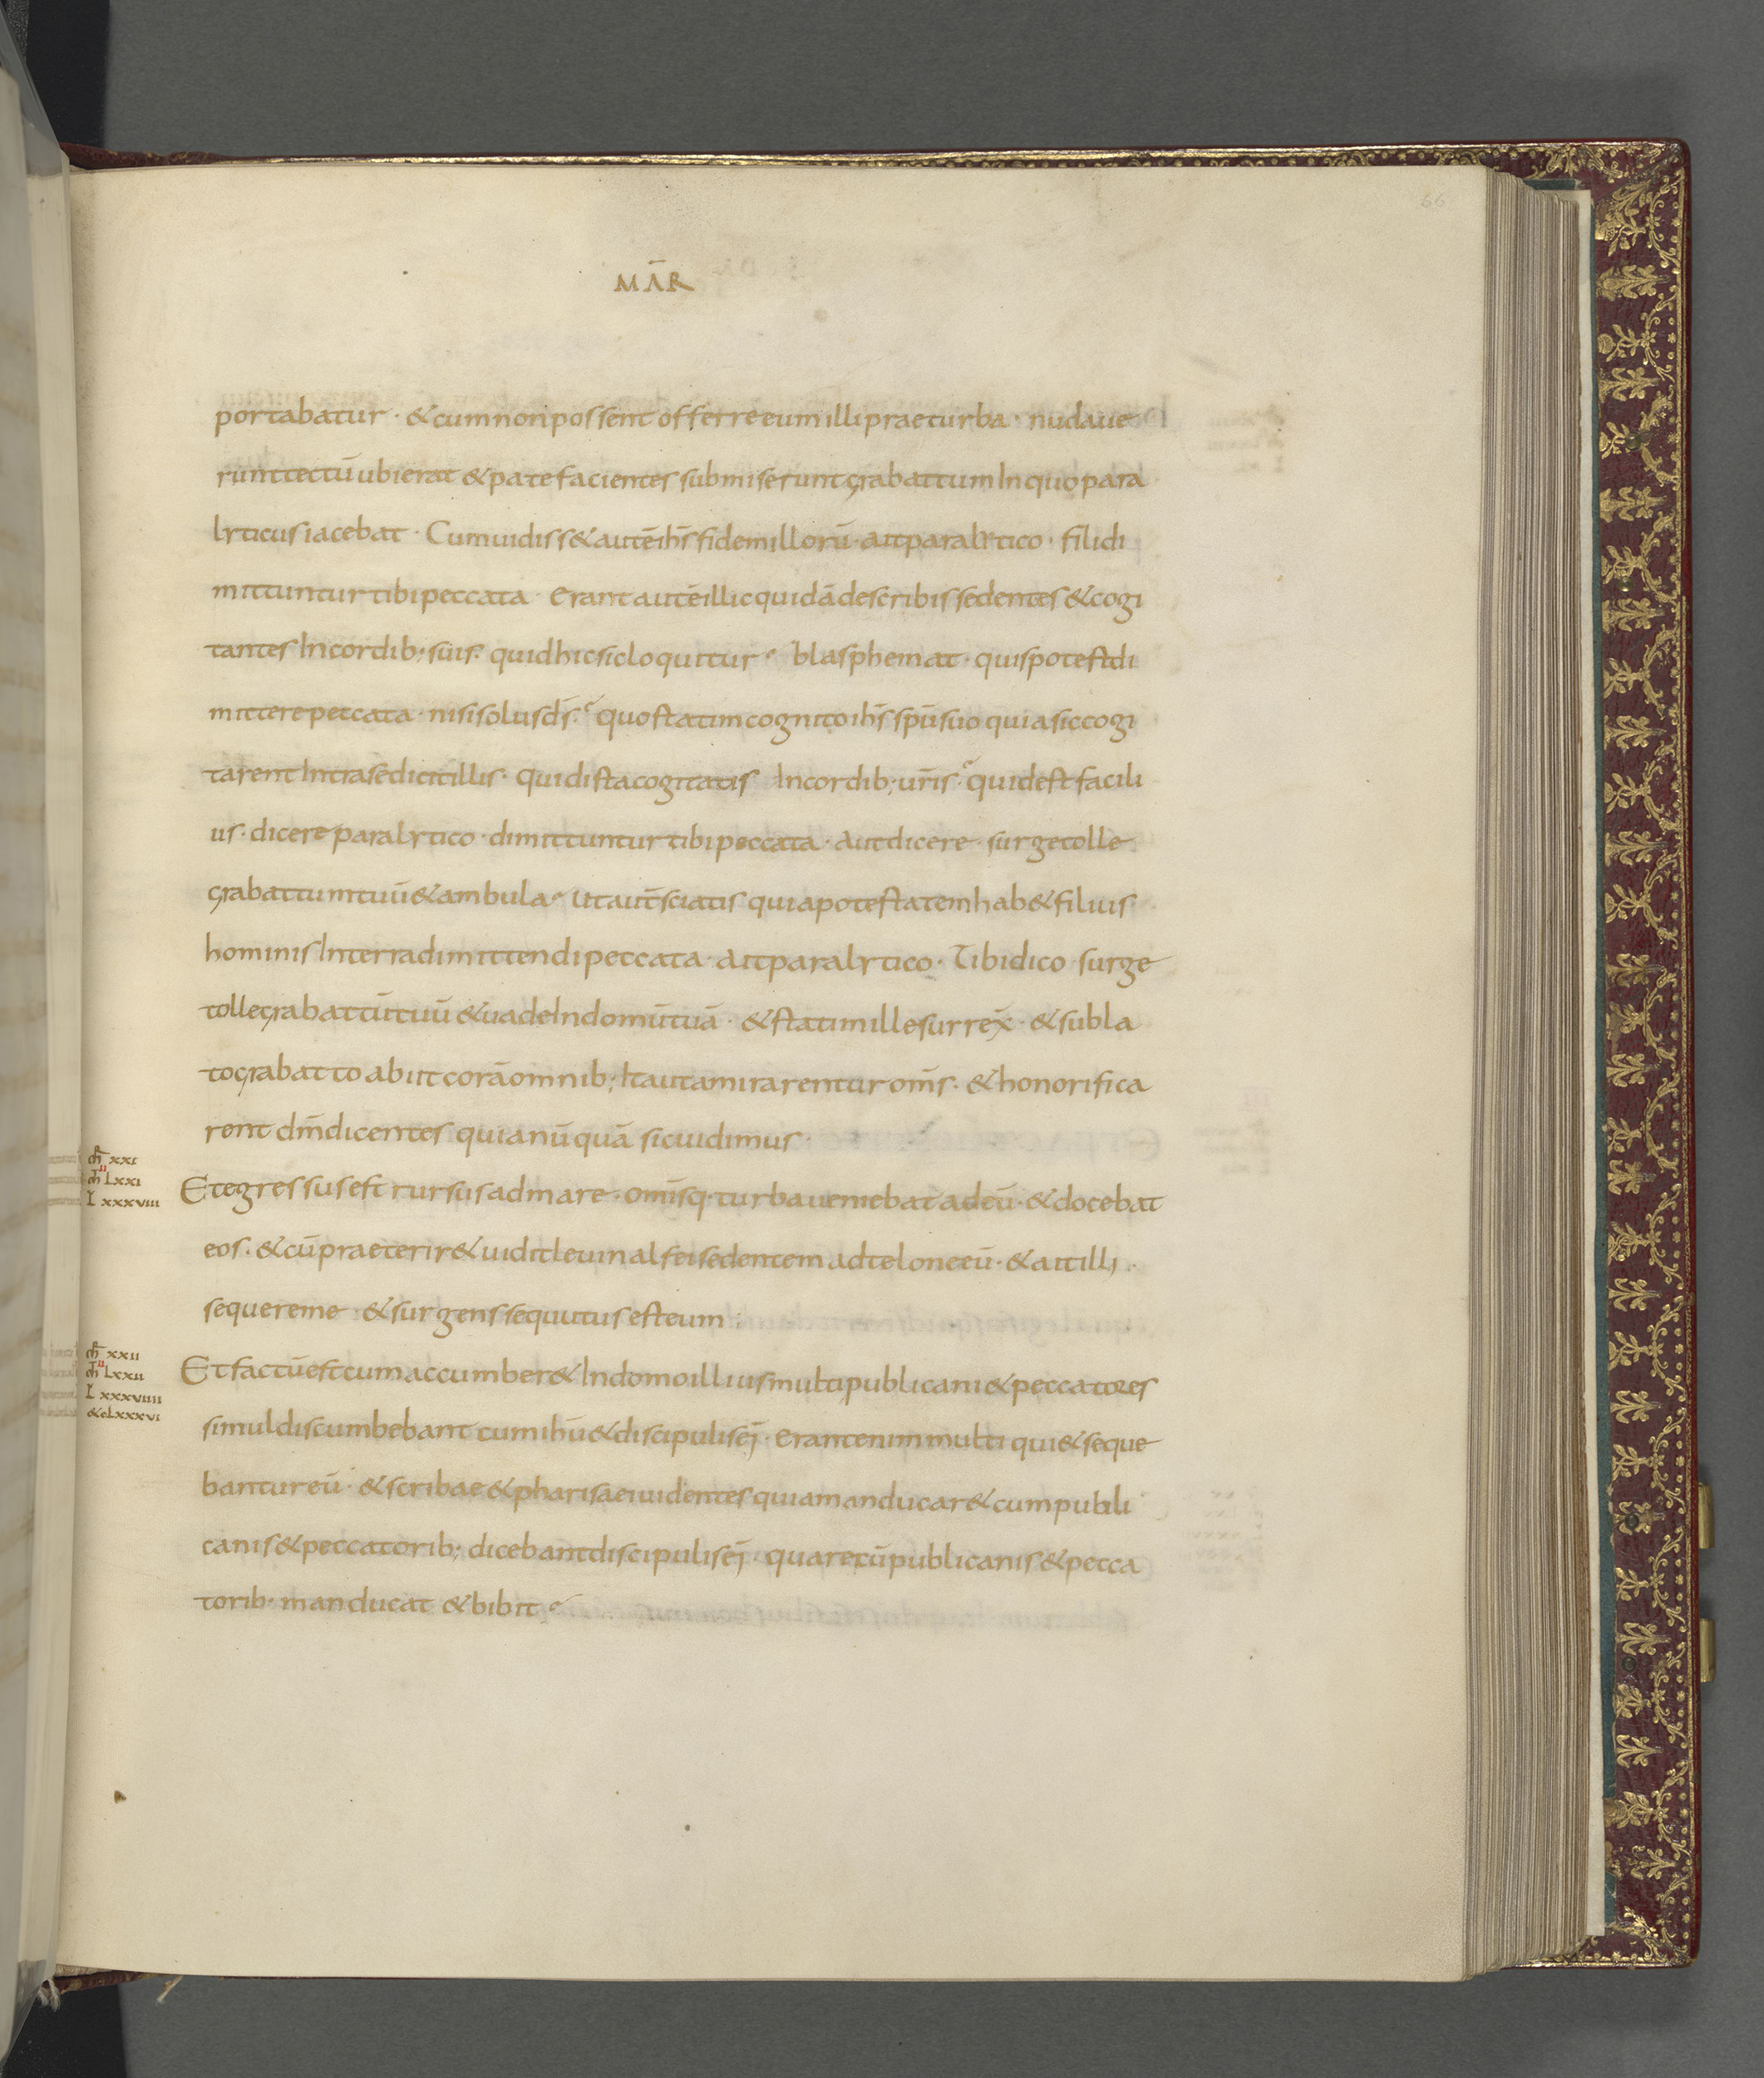 66
MĀR
portabatur · & cum non possent offerre eum illi prae turba · nudaue
runt tectū ubi erat & patefacientes submiserunt grabattum In quo para
lyticus iacebat · Cum uidiss& autē ih̅s fidem illorū · ait paralytico · fili di
mittuntur tibi peccata · erant autē illic quidā de scribis sedentes & cogi
tantes In cordib; suis · quid hic sic loquitur? blasphemat · quis potest di
mittere peccata · nisi solus d̅s? quo statim cognito ih̅s sp̅u suo quia sic cogi
tarent Intra se dicit illis · quid ista cogitatis In cordib; ur̅is? quid est facili
us · dicere paralytico · dimittuntur tibi peccata · aut dicere · surge tolle
grabattum tuū & ambula? ut aut̅ sciatis quia potestatem hab& filius
hominis In terra dimittendi peccata · ait paralytico · Tibi dico · surge
tolle grabattū tuū & uade In domū tuā · & statim ille surrex̅ · & subla
to grabatto abiit corā omnib; Ita ut amirarentur om̅s · & honorifica
rent d̅m dicentes quia nūquā sic uidimus ·
m̅r xxi
m̅t Lxxi
L xxxviii
Et egressus est rursus ad mare · omisq· turba ueniebat ad eū · & docebat
eos · & cū praeterir& uidit leuin alfei sedentem ad teloneū · & ait illi ·
sequere me · & surgens sequutus est eum :
m̅r xxii
m̅t Lxxii
L xxxviiii
& c Lxxxvi
Et factū est cum accumber& In domo illius multi publicani & peccatores
simul discumbebant cum ih̅u & discipulis ej · erant enim multi qui & seque
bantur eū · & scribae & pharisaei uidentes quia manducar& cum publi
canis & peccatorib; dicebant discipulis ej · quare cū publicanis & pecca
torib· manducat & bibit?